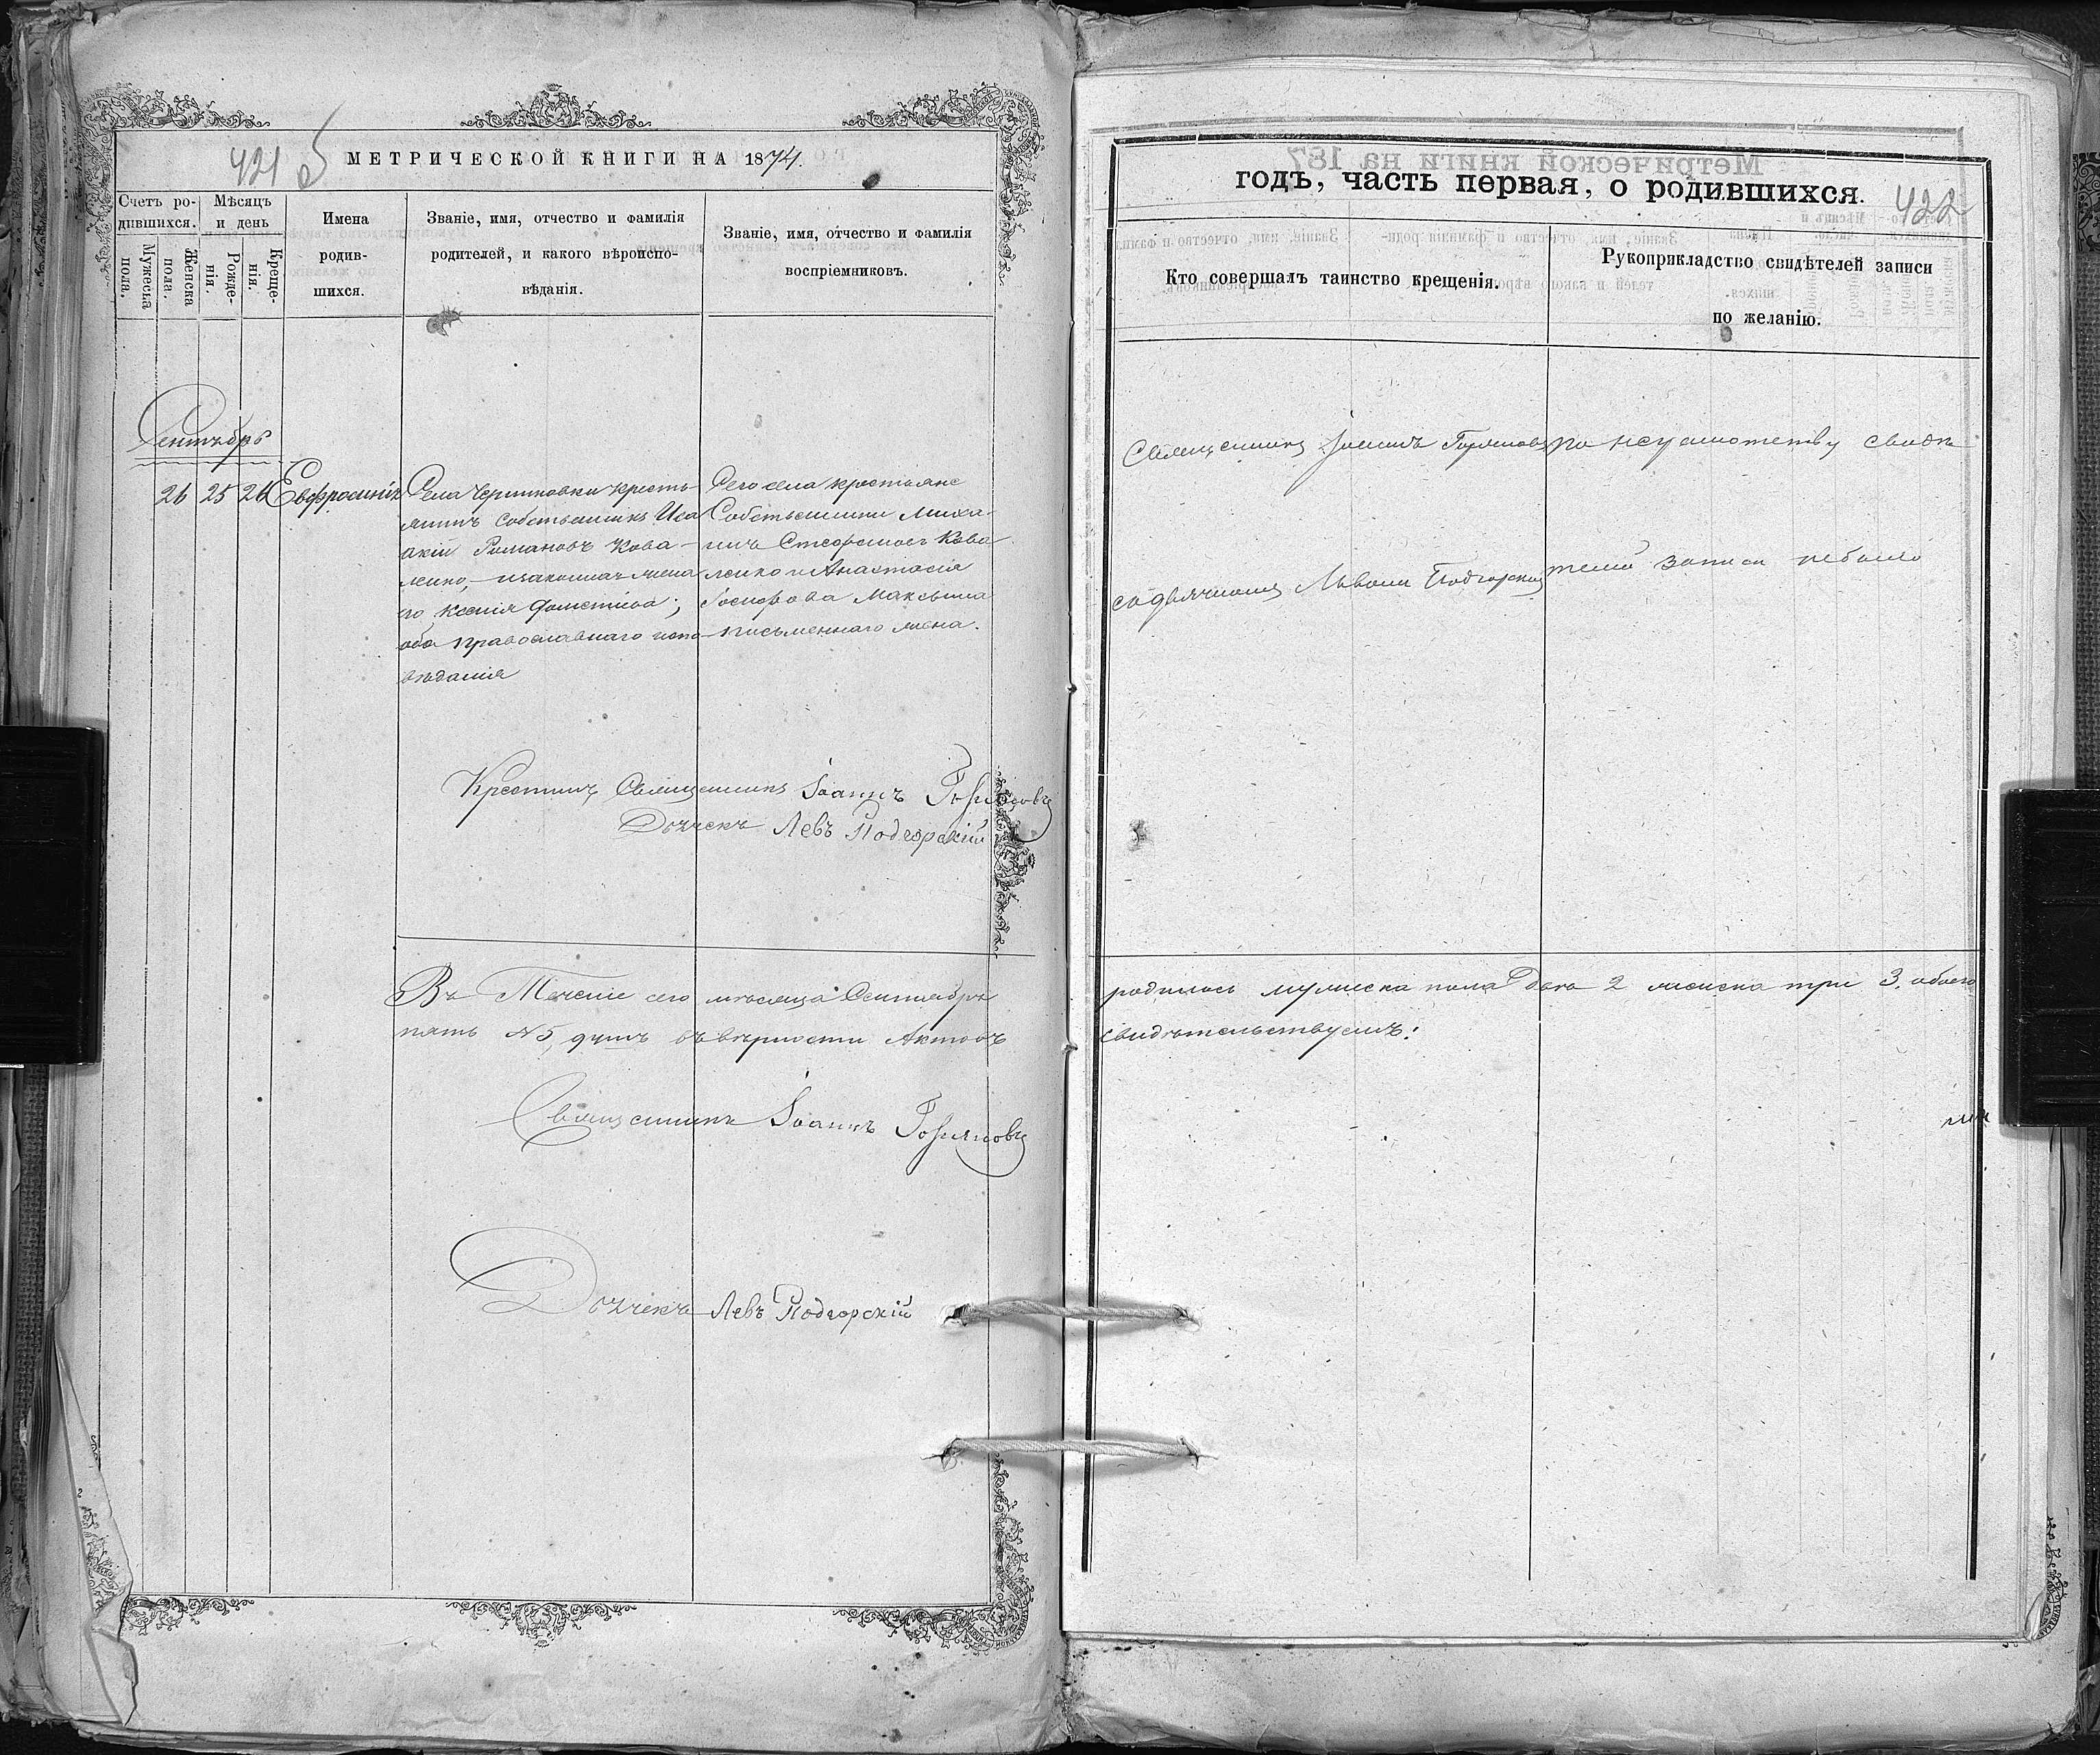 421 б
МЕТРИЧЕСКОЙ КНИГИ НА 1874.
Счетъ ро-
дившихся.
Мужеска
пола.
Женска
пола.
Мѣсяцъ
и день
Рожде-
нія.
Креще-
нія.
Имена
родив-
шихся.
Званіе, имя, отчество и фамилія
родителей, и какого вѣроиспо-
вѣданія.
Званіе, имя, отчество и фамилія
воспріемниковъ.
Сентябрь
26 25 26 Евфросинія
Села крестья-
нинъ собственникъ Иса
акій Романовъ Кова-
ленко, и законная жена
его Ксенія
оба православнаго испо-
вѣданія
Сего села крестьяне
Собственники Миха-
илъ Стефановъ Кова
ленко и Анастасія
Іосифова
письменнаго жена.
Крестилъ Священникъ Іоаннъ
Дьячекъ Левъ Подгорскій
Въ Теченіе сего мѣсяца Сентября
пять №5, душъ въ вѣрности Актовъ
Священникъ Іоаннъ
Дьячекъ Левъ Подгорскій
годъ, часть первая, о родившихся.
422
Кто совершалъ таинство крещенія.
Рукоприкладство свидѣтелей записи
по желанію.
Священникъ Іоаннъ
содьячкомъ Львомъ Подгорскимъ
по неграмотству свидѣ
телей записи небыло
родилось мужеска пола два 2 женска три 3. обоего
свидѣтельствуемъ: